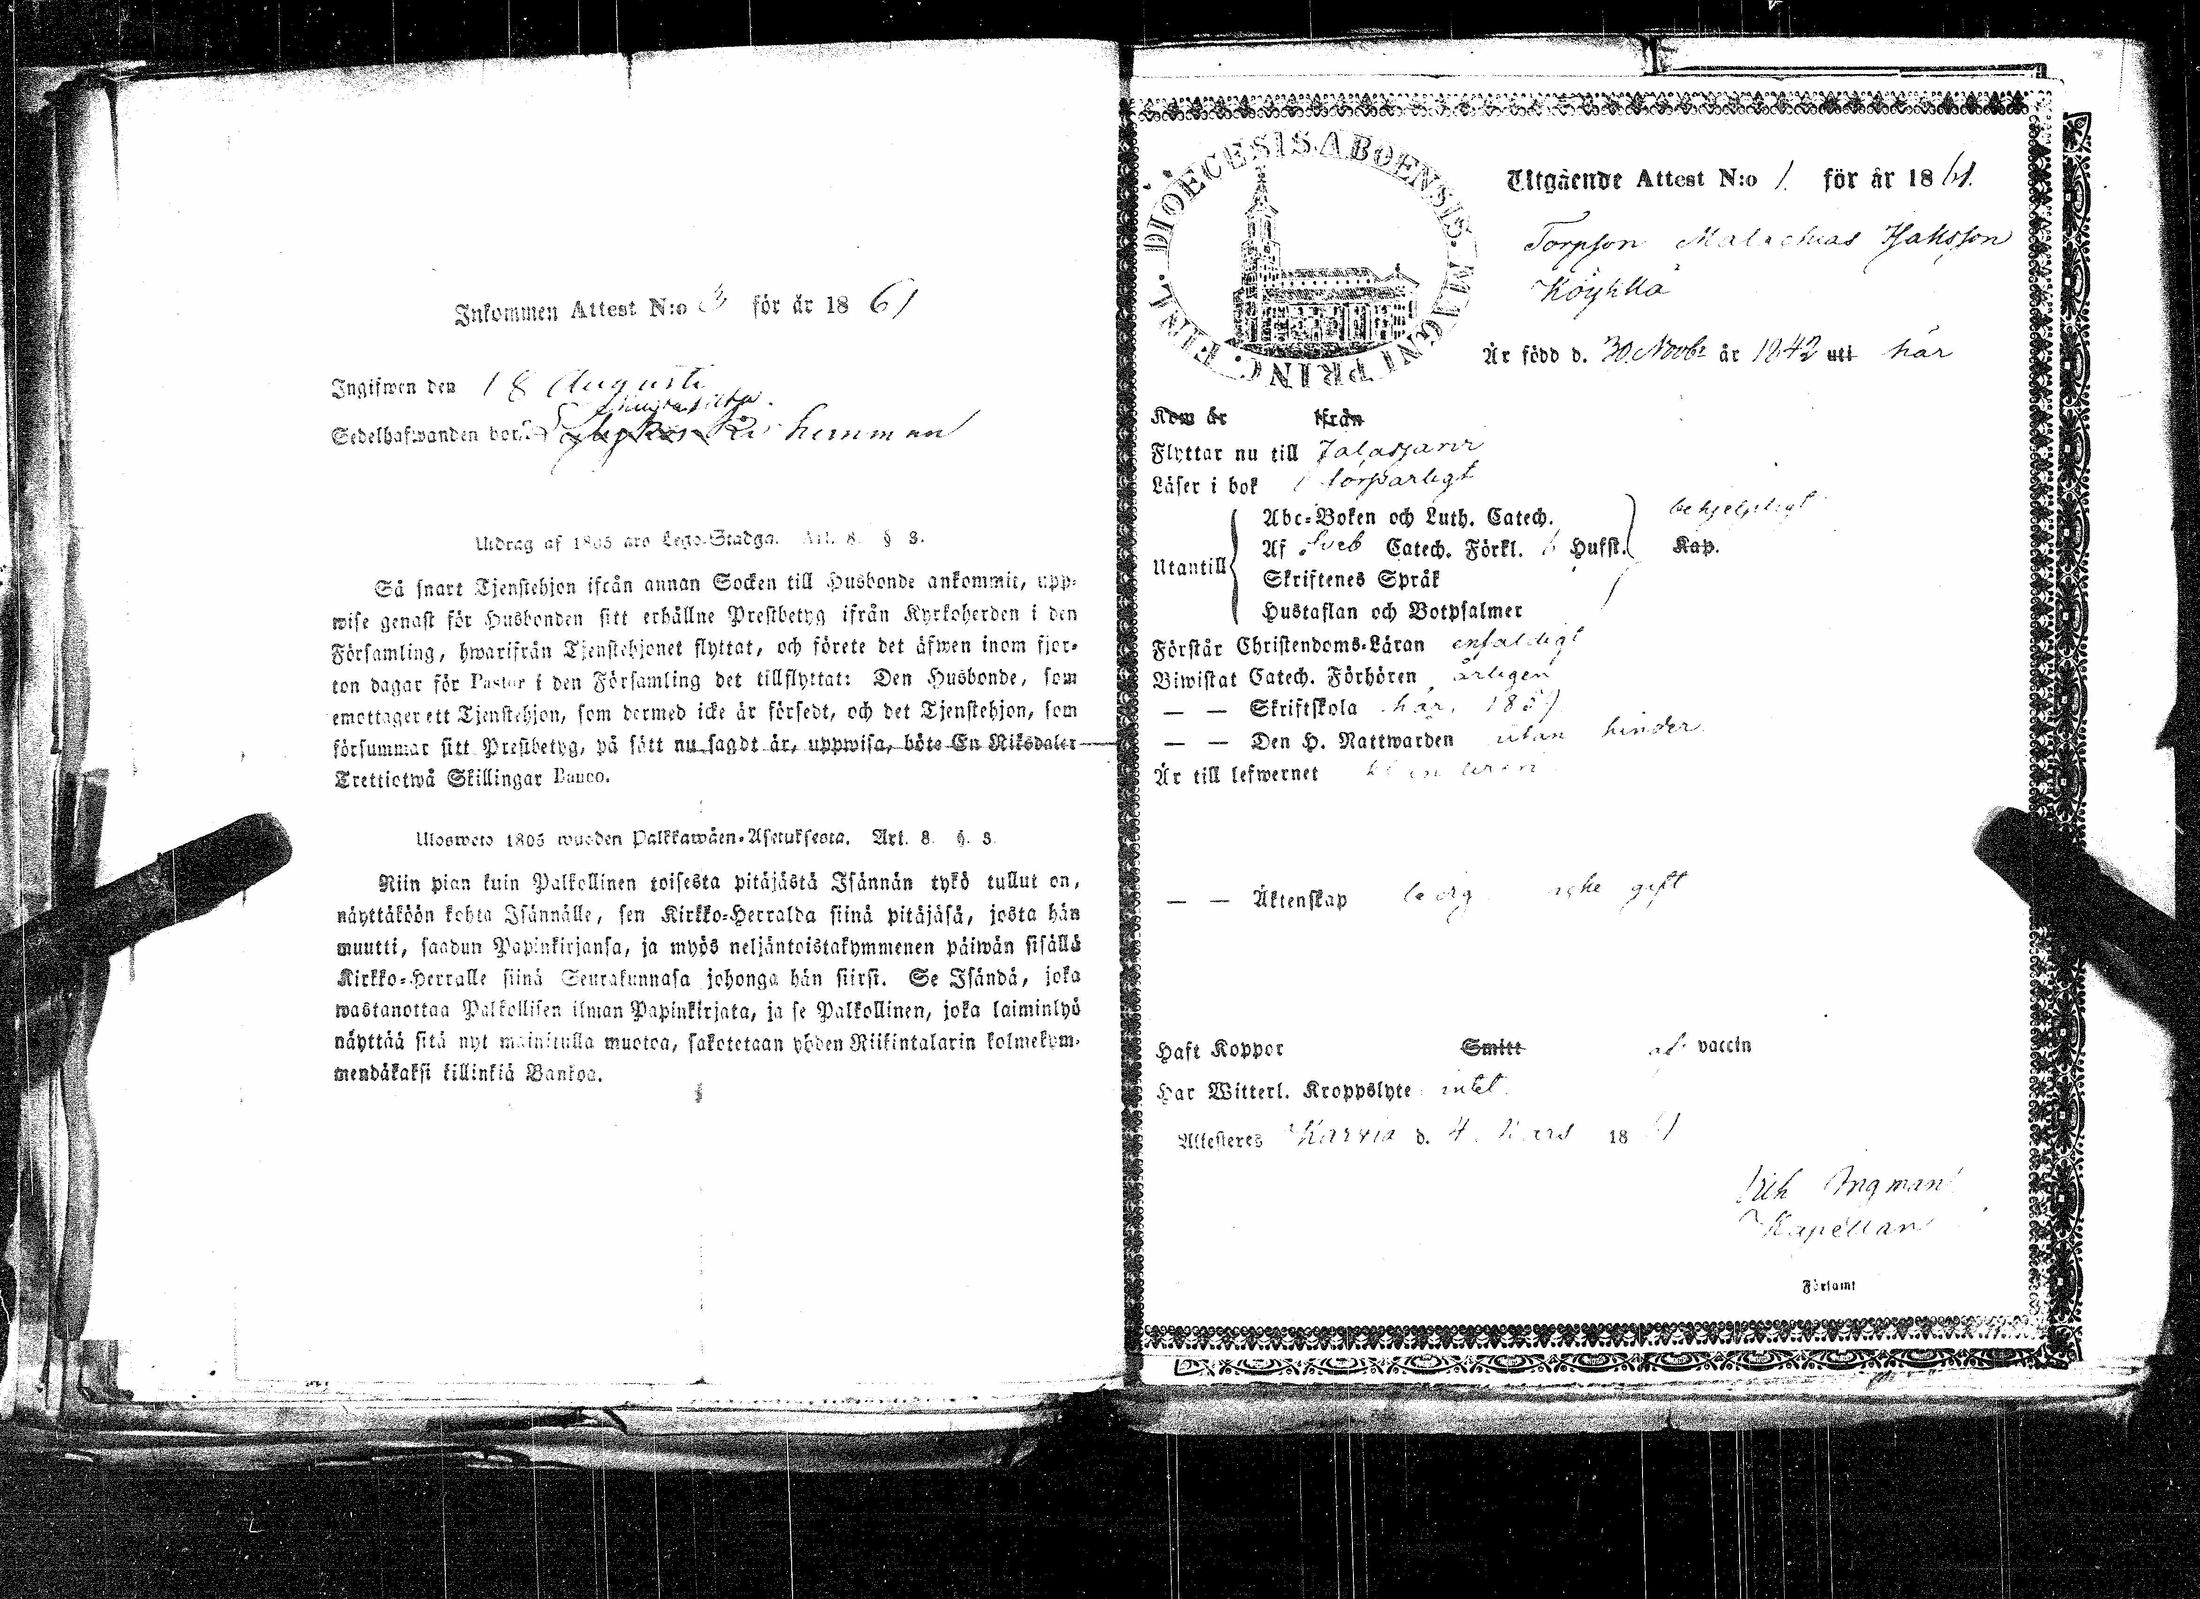 Inkommen Attest N:o 3 för år 1861
Ingifwen den 18 Augusti
Sedelhafwanden bor hemman
Utdrag af 1805 års Lego-Stadga. Art. 8. § 3.
Så snart Tjenstehjon ifrån annan Socken till Husbonde ankommit, upp-
wise genast för Husbonden sitt erhållne Prestbetyg ifrån Kyrkoherden i den
Församling, hwarifrån Tjenstehjonet flyttat, och förete det äfwen inom fjor-
ton dagar för Pastor i den Församling det tillflyttat: Den Husbonde, som
emottager ett Tjenstehjon, som dermed icke är försedt, och det Tjenstehjon, som
försummar sitt Prestbetyg, på sätt nu sagdt är, uppwisa, böte En Riksdaler
Trettiotwå Skillingar Banco.
Ulosweto 1805 wuoden Palkkawäen-Asetuksesta. Art. 8. §. 3.
Niin pian kuin Palkollinen toisesta pitäjästä Isännän tykö tullut on,
näyttäköön kohta Isännälle, sen Kirkko-Herralda siinä pitäjäsä, josta hän
muutti, saadun Papinkirjansa, ja myös neljäntoistakymmenen päiwän sisällä
Kirkko-Herralle siinä Seurakunnasa johonga hän siirsi. Se Isändä, joka
wastanottaa Palkollisen ilman Papinkirjata, ja se Palkollinen, joka laiminlyö
näyttää sitä nyt mainitulla muotoa, sakotetaan yhden Riikintalarin kolmekym-
mendäkaksi killinkiä Bankoa.
DIOECESIS ABOENSIS. MAGNI PRINC. FINL.
Utgående Attest N:o 1 för år 1861.
Torpson Malachias Isaksson
Köykkä
Är född d. 30 Novbr år 1842 utt här
Kom år ifrån
Flyttar nu till Jalasjärvi
Läser i bok försvarligt
Utantill
Abc-Boken och Luth. Catech. behjelpligt
Af Sveb Catech. Förkl. 6 Hufst. Kap.
Skriftenes Språk
Hustaflan och Botpsalmer
Förstår Christendoms-Läran enfaldigt
Biwistat Catech. Förhören årligen
— — Skriftskola här, 1857
— — Den H. Nattwarden utan hinder
Är till lefwernet
— — Äktenskap ledig icke gift
Haft Koppor Smitt af vaccin
Har Witterl. Kroppslyte intet
Attesteres Karvia d. 4 Mars 1861
Erik Ingman
Kapellan
Församl